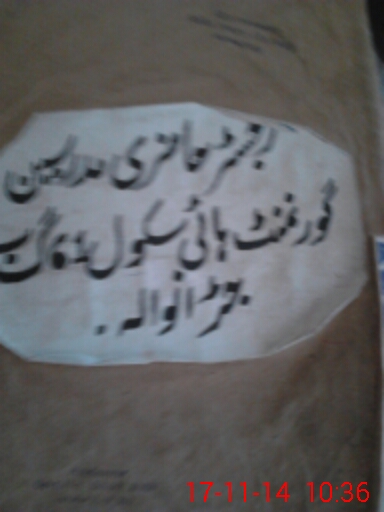 رجسٹر حاضری مدرسین
گورنمنٹ ہائی سکول
جڑانوالہ۔
17-11-14 10:36